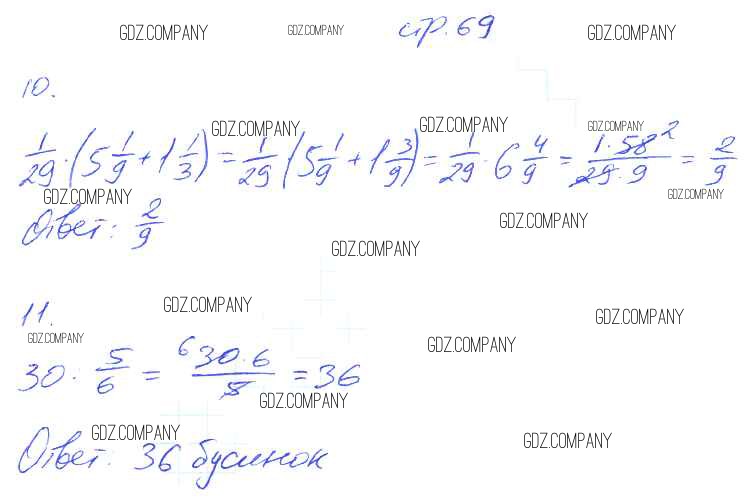 GDZ.COMPANY GDZ.COMPANY стр. 69 GDZ.COMPANY
10.
GDZ.COMPANY GDZ.COMPANY GDZ.COMPANY
1/29 · (5 1/9 + 1 1/3) = 1/29 (5 1/9 + 1 3/9) = 1/29 · 6 4/9 = 1 · 58 2 / 29 · 9 = 2/9
GDZ.COMPANY GDZ.COMPANY
Ответ: 2/9 GDZ.COMPANY
GDZ.COMPANY
GDZ.COMPANY GDZ.COMPANY
11.
GDZ.COMPANY GDZ.COMPANY
30 · 5/6 = 6 30 · 6 / 5 = 36
GDZ.COMPANY
GDZ.COMPANY GDZ.COMPANY
Ответ: 36 бусинок